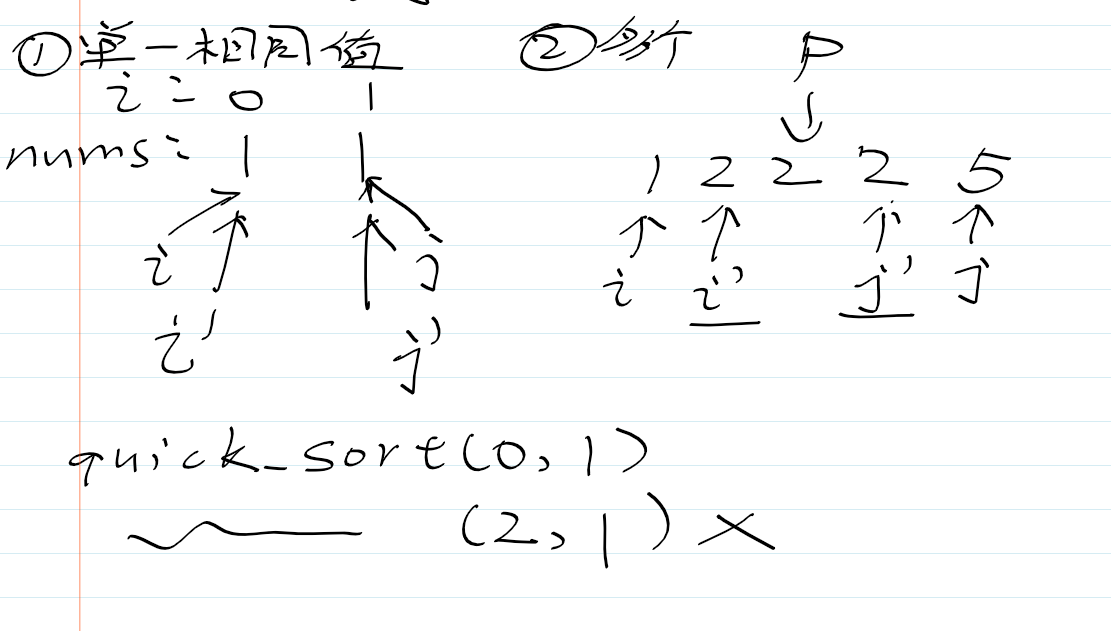 ①单一相同值
i: 0 1
nums: 1 1
i j
i' j'
②多个
P
1 2 2 2 5
i i' j' j
quick_sort(0,1)
(2,1)×